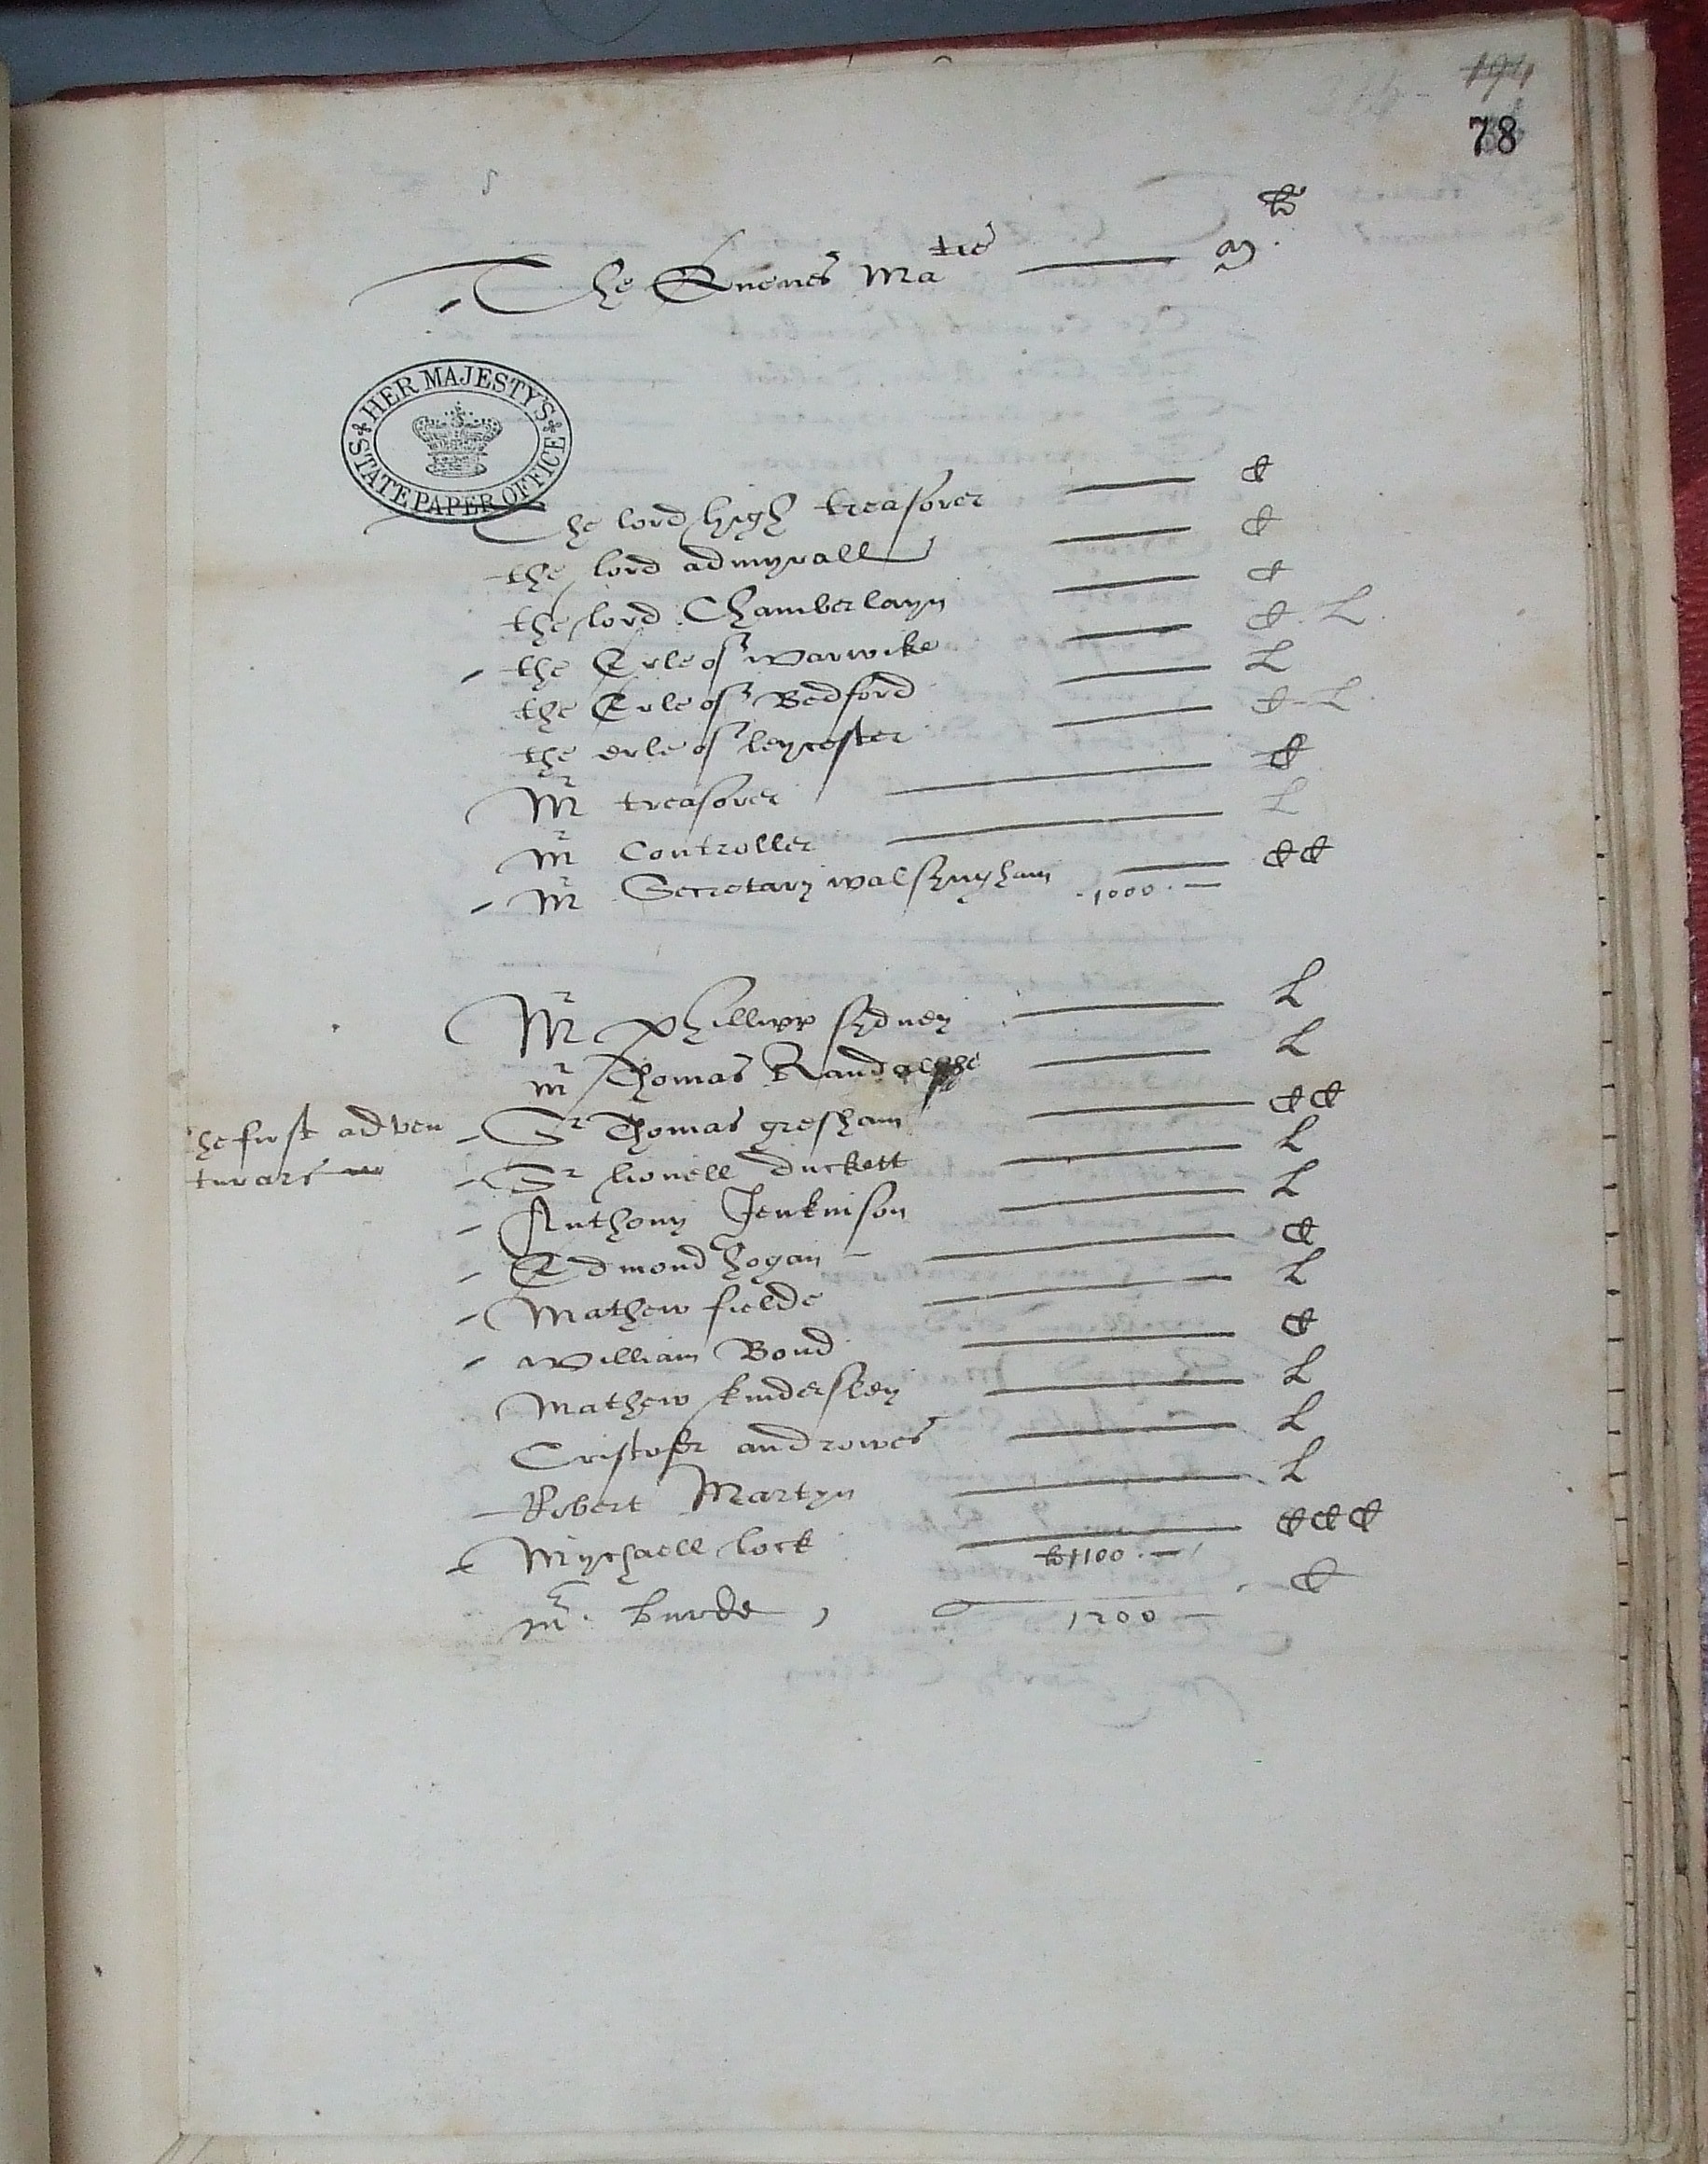 194
78
li
The Quenes Matie M
HER MAJESTY'S STATE PAPER OFFICE
The lord high treasorer C
the lord admyrall C
the lord Chamberlayn C
the Erle of warwike C. L.
the Erle of Bedford L
the erle of leycester C-L.
Mr treasorer C
Mr Controller L
Mr Secretary walsyngham CC
1000
Mr Phillipp sydney L
Mr Thomas Randolphe L
the first adven
turars
Sr Thomas gresham CC
Sr lionell duckett L
Anthony Jenkinson L
Edmond hogan C
Mathew fielde L
William Bond C
Mathew kindersley L
Cristofer androwes L
Robert Martyn L
Mychaell lock CCC
li 1100
mr burde C
1200